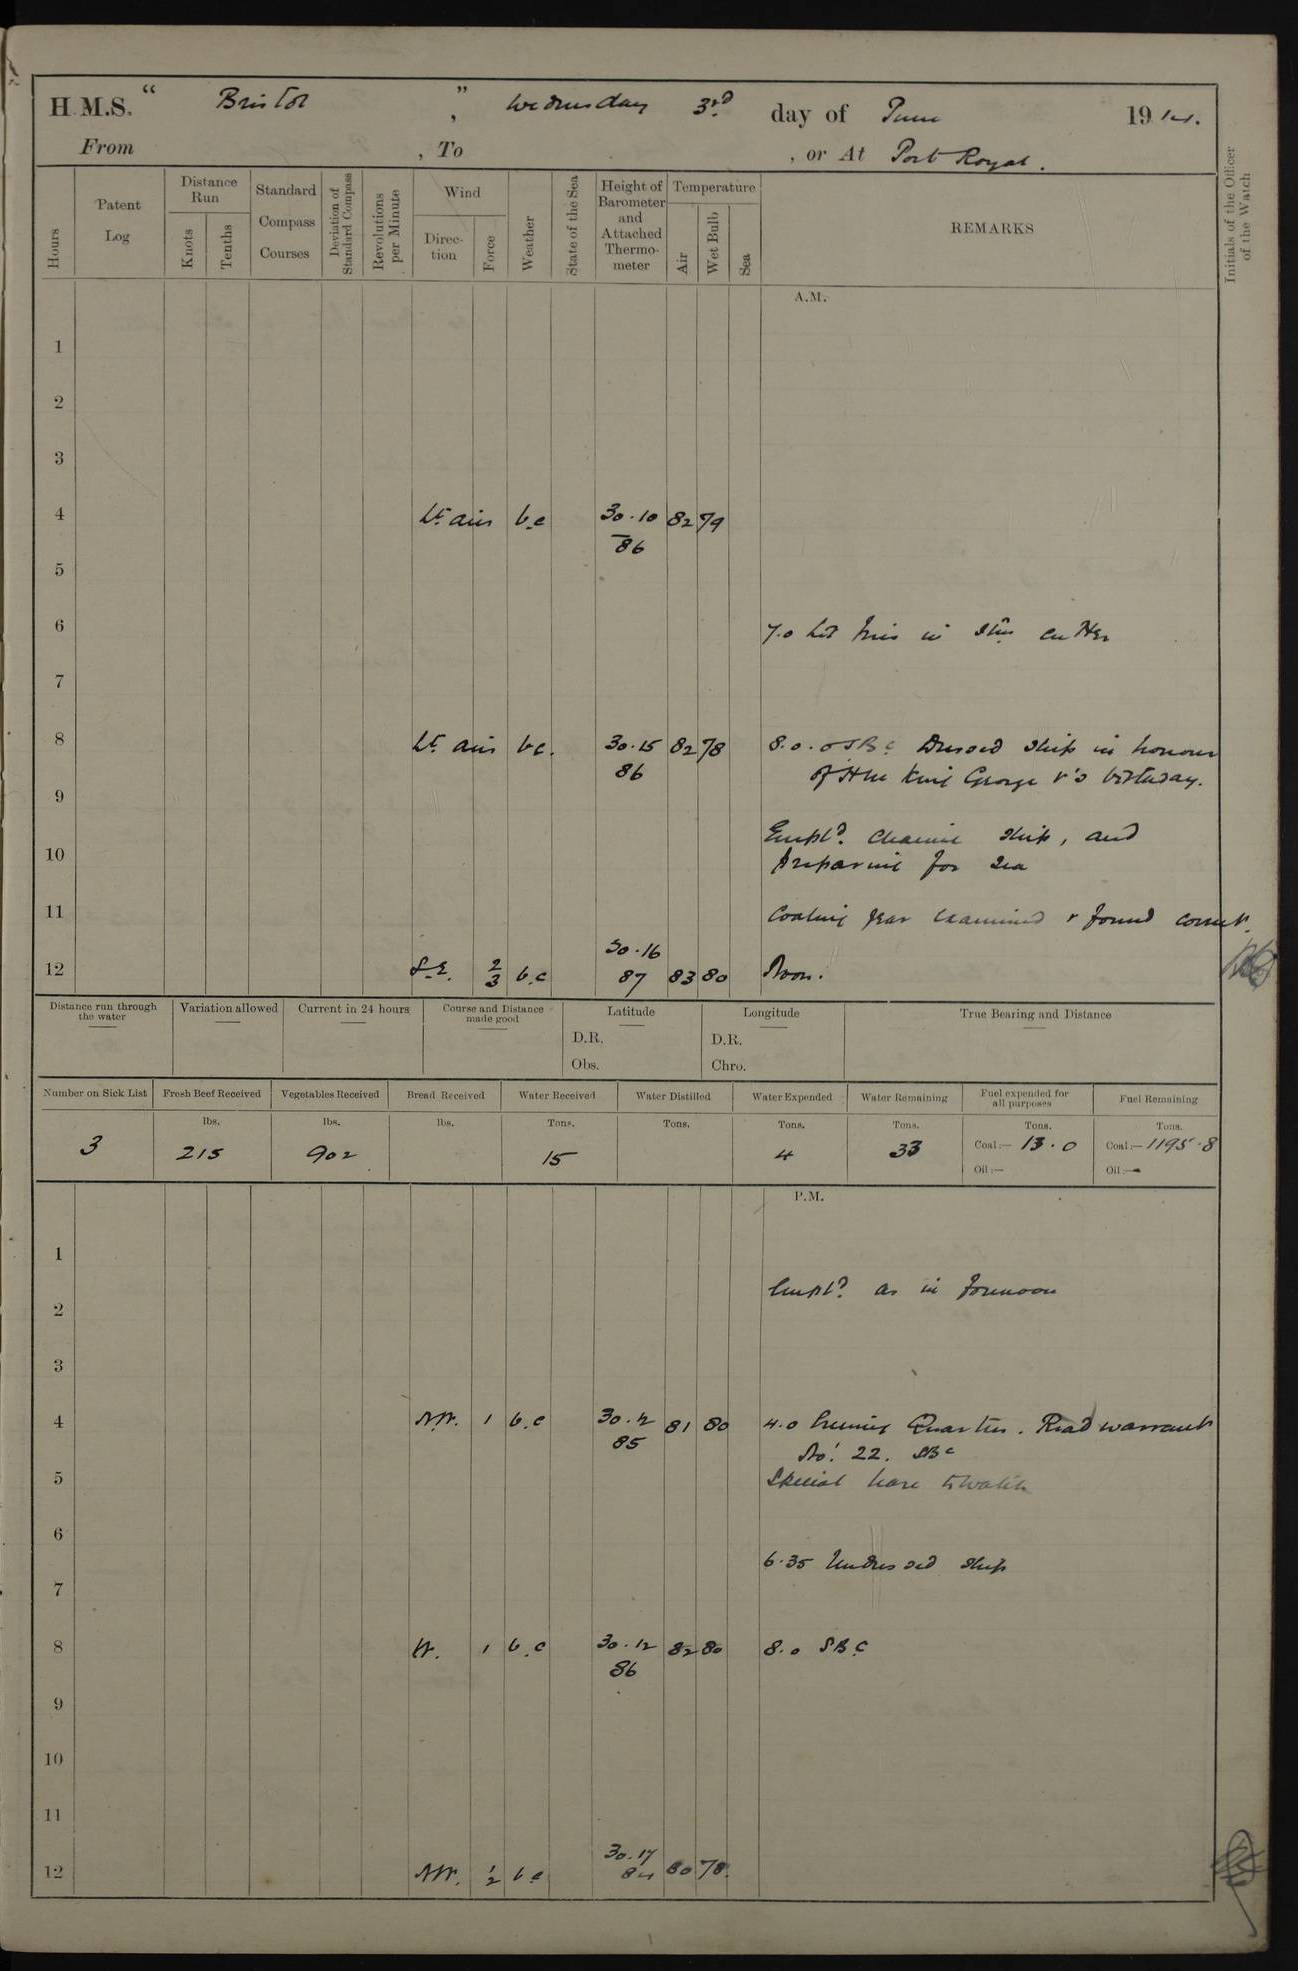 H.M.S. “ Bristol ” , Wednesday 3rd day of June 1914.
From , To , or At Port Royal.
Hours
Patent Log
Distance Run
Knots
Tenths
Standard Compass Courses
Deviation of Standard Compass
Revolutions per Minute
Wind
Direction
Force
Weather
State of the Sea
Height of Barometer and Attached Thermometer
Temperature
Air
Wet Bulb
Sea
REMARKS
Initials of the Officer of the Watch
A.M.
1
2
3
4 Lt airs b.c 30.10 82 79
86
5
6
7.0 Lit fires in Stm cutter
7
8 Lt airs bc. 30.15 82 78 8.0. SBC Dressed ship in honour
86 of HM King George V's birthday.
9
Empld. cleaning ship, and
10 preparing for sea
11 Coaling gear examined & found correct.
30.16
12 S.E. 2/3 b.c 87 83 80 Noon.
Distance run through the water
Variation allowed
Current in 24 hours
Course and Distance made good
Latitude
D.R.
Obs.
Longitude
D.R.
Chro.
True Bearing and Distance
Number on Sick List
3
Fresh Beef Received
lbs.
215
Vegetables Received
lbs.
902
Bread Received
lbs.
Water Received
Tons.
15
Water Distilled
Tons.
Water Expended
Tons.
4
Water Remaining
Tons.
33
Fuel expended for all purposes
Tons.
Coal:— 13.0
Oil:—
Fuel Remaining
Tons.
Coal:— 1195.8
Oil:—
P.M.
1
Empld. as in forenoon
2
3
4 NW. 1 b.c 81 80 4.0 Evening Quarters. Read warrant
85 No. 22. SBC
5 Special leave to watch
6
6.35 Undressed ship
7
8 W. 1 b.c 30.12 82 80 8.0 SBC
86
9
10
11
30.17
12 NW. 1/2 bc 84 80 78.